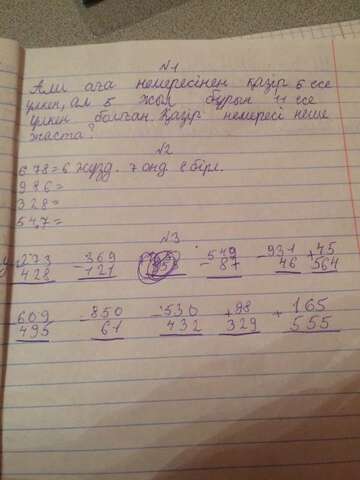 №1
Али аға немересінен қазір 6 есе
үлкен, ал 5 жыл бұрын 11 есе
үлкен болған. Қазір немересі неше
жаста?
№2
678=6 жүзд. 7 онд 8 бірл.
986=
328=
547=
№3
273 -369 -549 -931 +45
428 121 87 46 564
609 -850 -530 +98 +165
495 61 432 329 555